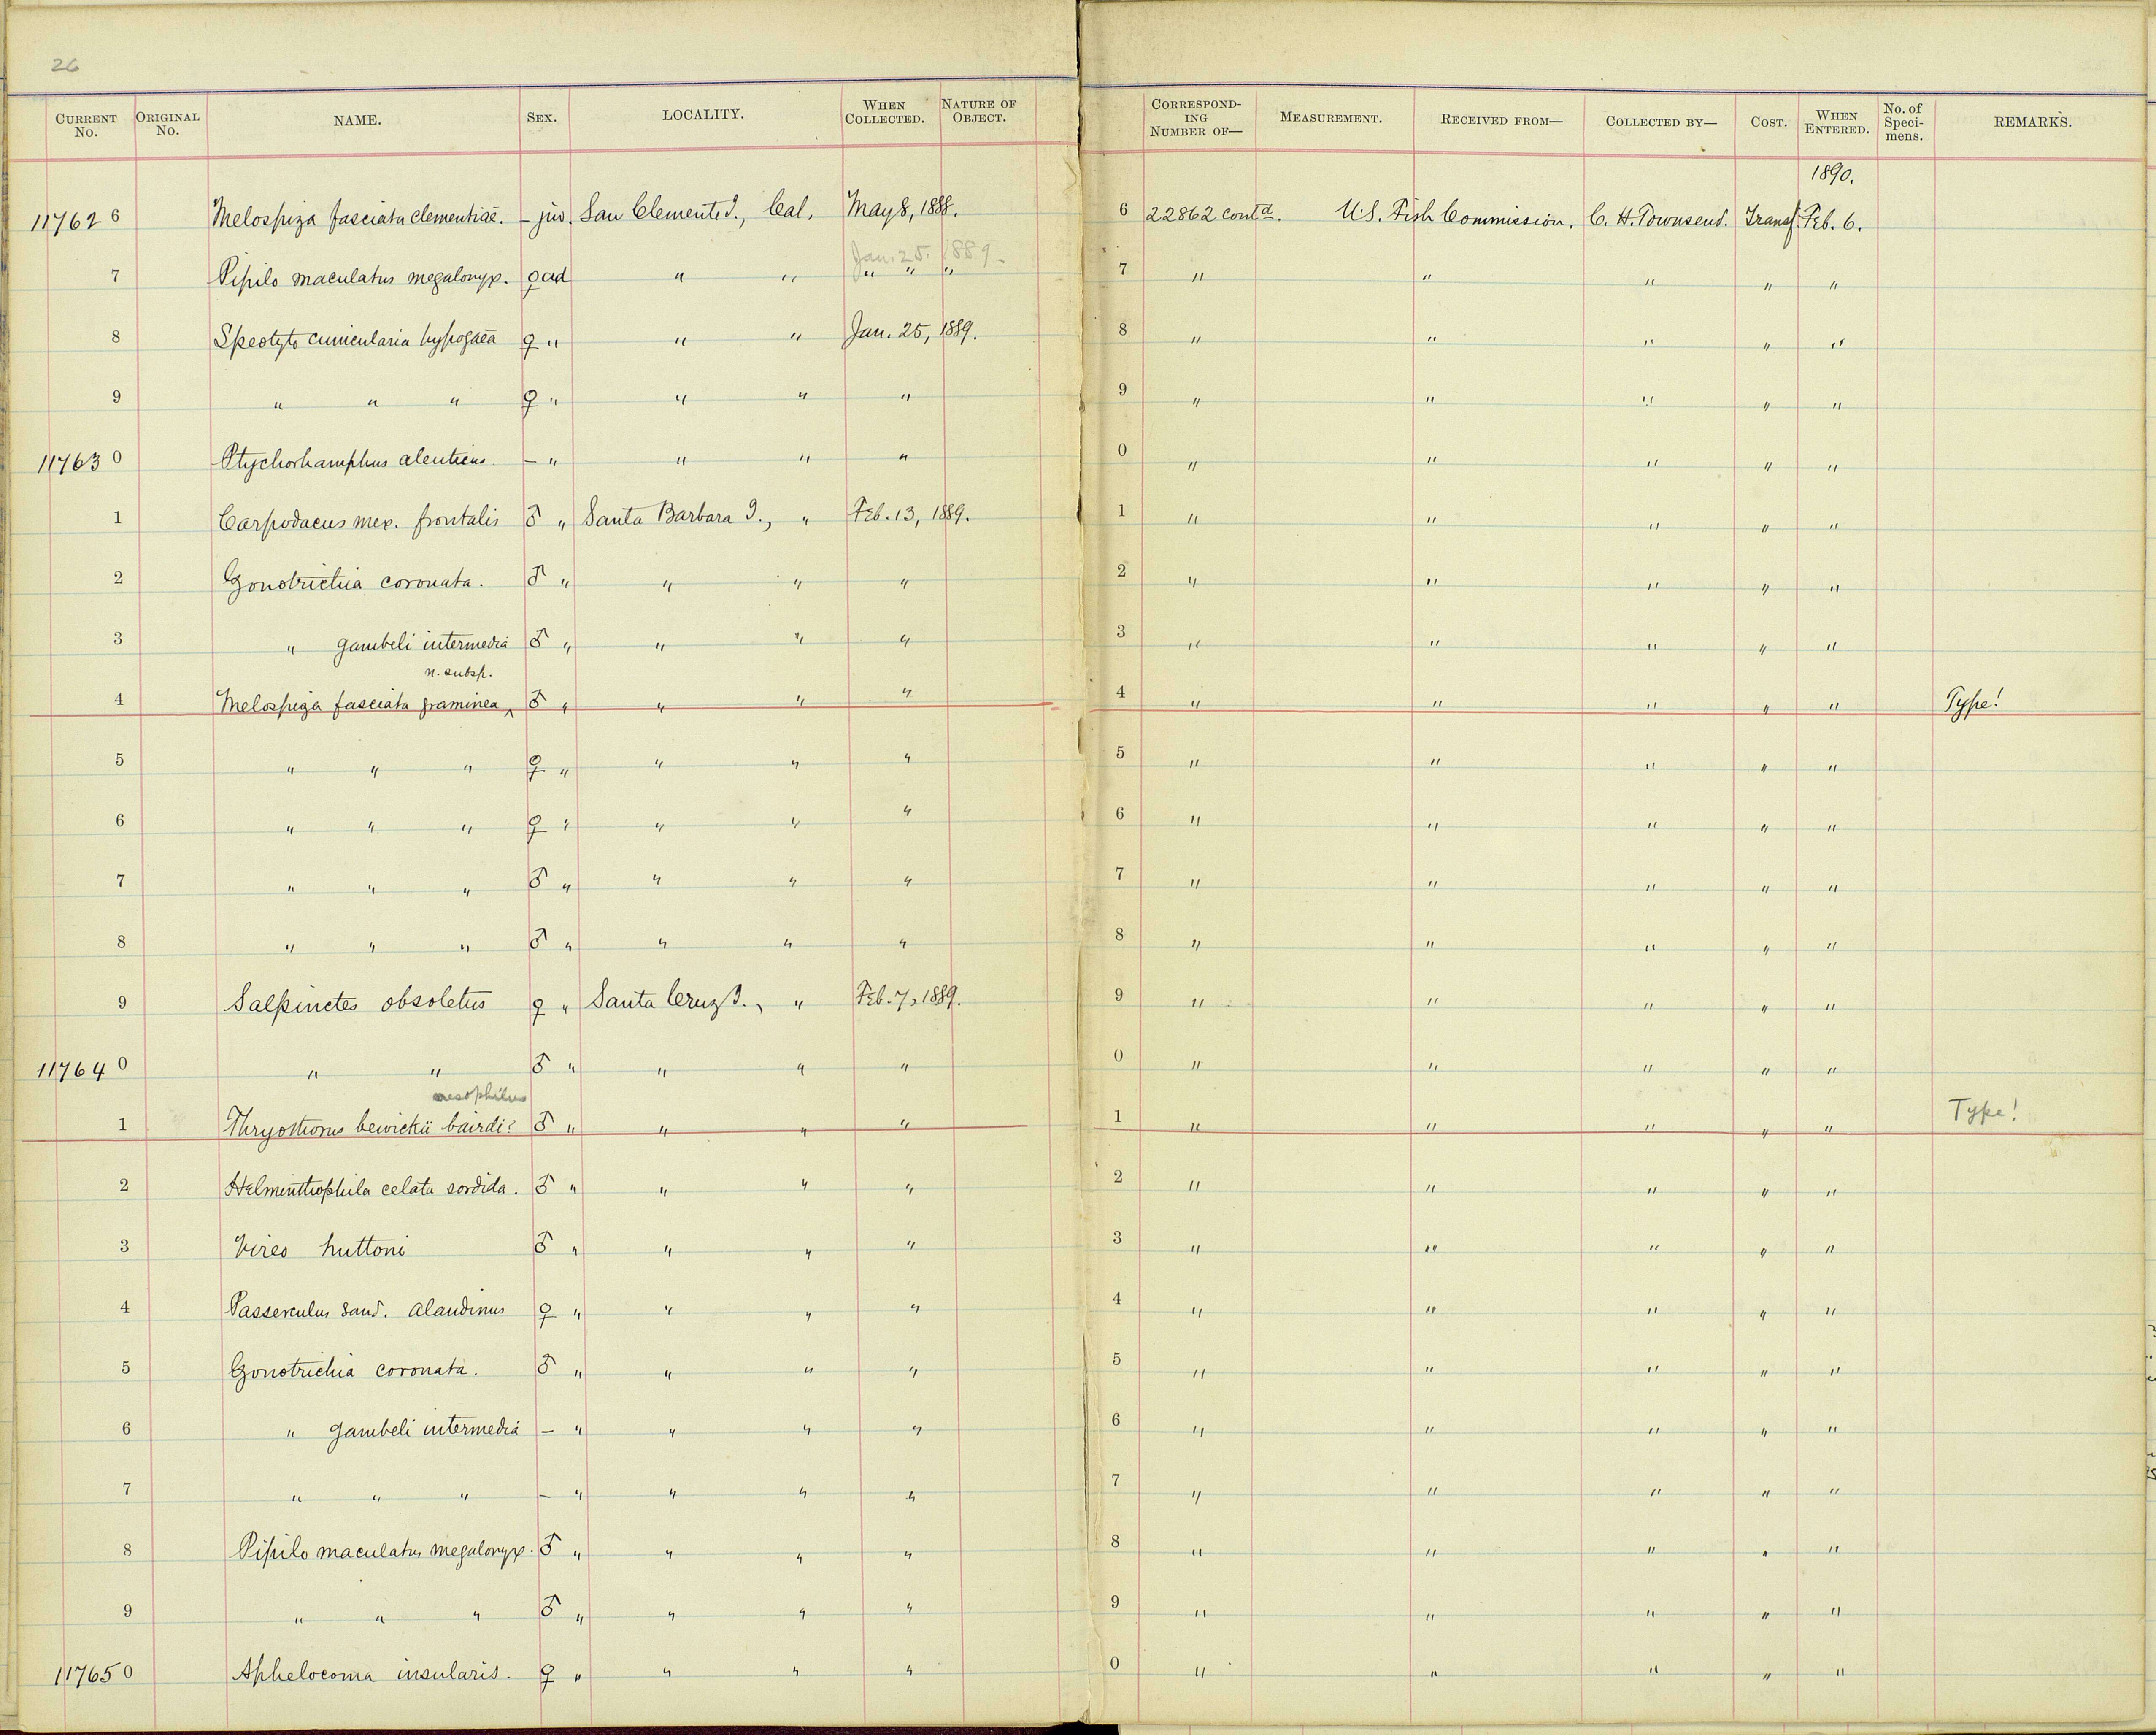 26
CURRENT No. ORIGINAL No. NAME. SEX. LOCALITY. WHEN COLLECTED. NATURE OF OBJECT. CORRESPONDING NUMBER OF— MEASUREMENT. RECEIVED FROM— COLLECTED BY— COST. WHEN ENTERED. No. of Specimens. REMARKS.
1890.
117626 Melospiza fasciata clementiae. – juv. San Clemente I., Cal. May 8, 1888. 6 22862 contd. U.S. Fish Commission. C. H. Townsend. Transf. Feb. 6.
Jan. 25. 1889.
7 Pipilo maculatus megalonyx. ♀ ad " " " " " 7 " " " " "
8 Speotyto cunicularia hypogaea ♀ " " " Jan. 25, 1889. 8 " " " " "
9 " " " ♀ " " " " 9 " " " " "
117630 Ptychorhamphus aleuticus – " " " " 0 " " " " "
1 Carpodacus mex. frontalis ♂ " Santa Barbara I., " Feb. 13, 1889. 1 " " " " "
2 Zonotrichia coronata. ♂ " " " " 2 " " " " "
3 " gambeli intermedia ♂ " " " " 3 " " " " "
n. subsp.
4 Melospiza fasciata graminea ‸ ♂ " " " " 4 " " " " " Type!
5 " " " ♀ " " " " 5 " " " " "
6 " " " ♀ " " " " 6 " " " " "
7 " " " ♂ " " " " 7 " " " " "
8 " " " ♂ " " " " 8 " " " " "
9 Salpinctes obsoletus ♀ " Santa Cruz I., " Feb. 7, 1889. 9 " " " " "
117640 " " ♂ " " " " 0 " " " " "
nesophilus
1 Thryothorus bewickii bairdi? ♂ " " " " 1 " " " " " Type!
2 Helminthophila celata sordida. ♂ " " " " 2 " " " " "
3 Vireo huttoni ♂ " " " " 3 " " " " "
4 Passerculus sand. alaudinus ♀ " " " " 4 " " " " "
5 Zonotrichia coronata. ♂ " " " " 5 " " " " "
6 " gambeli intermedia – " " " " 6 " " " " "
7 " " " – " " " " 7 " " " " "
8 Pipilo maculatus megalonyx. ♂ " " " " 8 " " " " "
9 " " " ♂ " " " " 9 " " " " "
117650 Aphelocoma insularis. ♀ " " " " 0 " " " " "